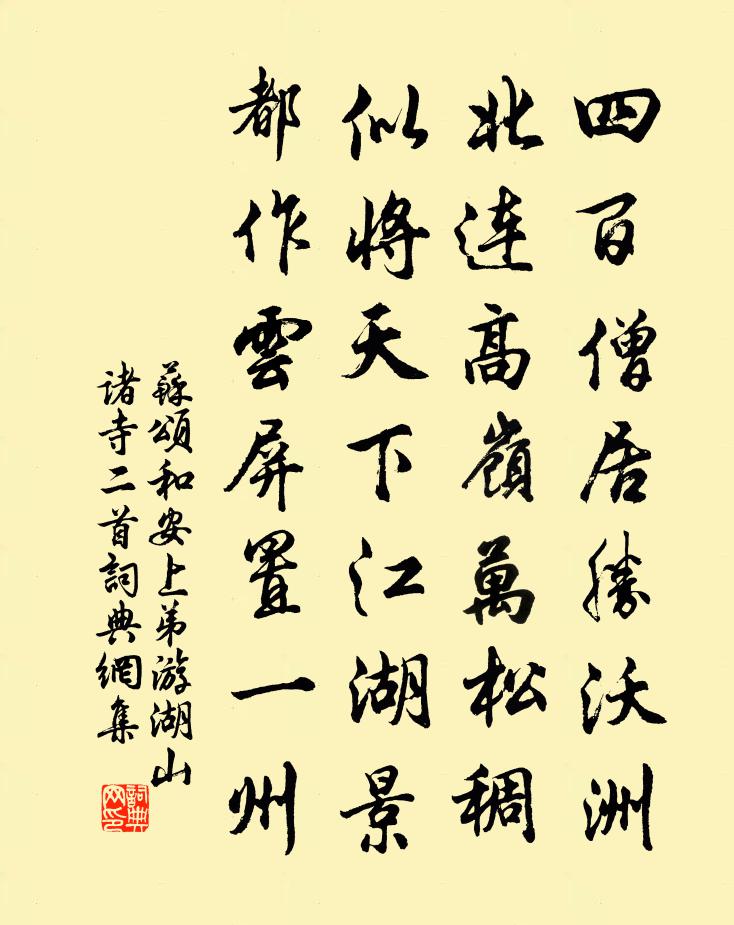 四百僧居勝沃洲
北連高嶺萬松稠
似將天下江湖景
都作雲屏置一州
蘇頌和安上弟游湖山
諸寺二首詞典網集
詞典
網印